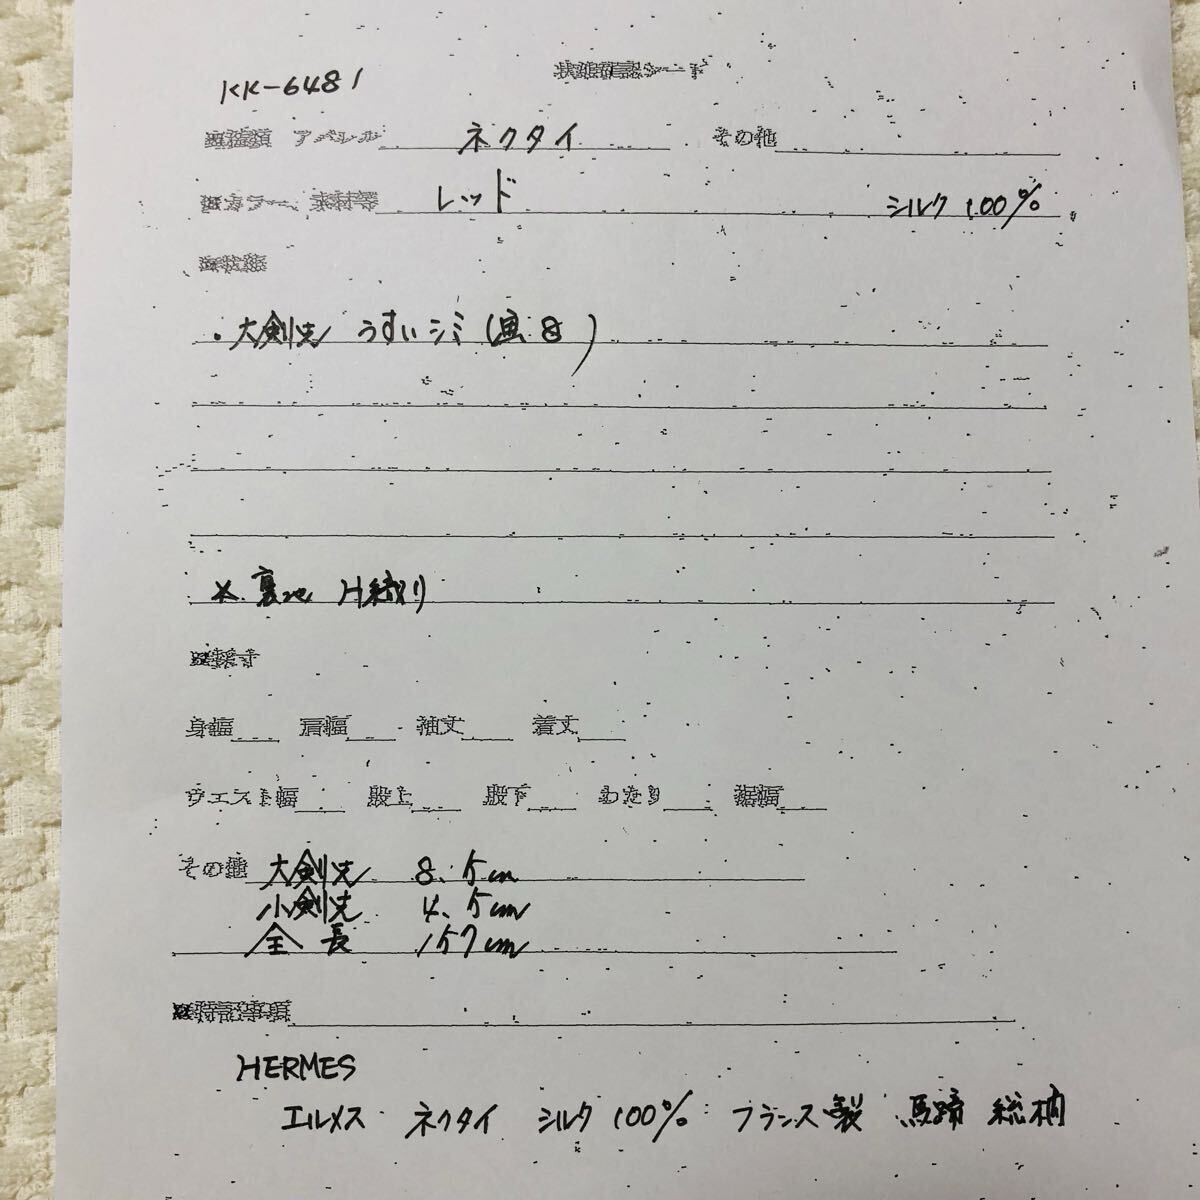 KK-6481
状態確認シート
■種類 アパレル ネクタイ その他
■カラー、素材等 レッド シルク 100%
■状態
・大剣先 うすいシミ(画8)
※裏地 H織り
■採寸
身幅 肩幅 袖丈 着丈
ウエスト幅 股上 股下 わたり 裾幅
その他 大剣先 8.5cm
小剣先 4.5cm
全長 157cm
■特記事項
HERMES
エルメス ネクタイ シルク 100% フランス製 馬蹄 総柄